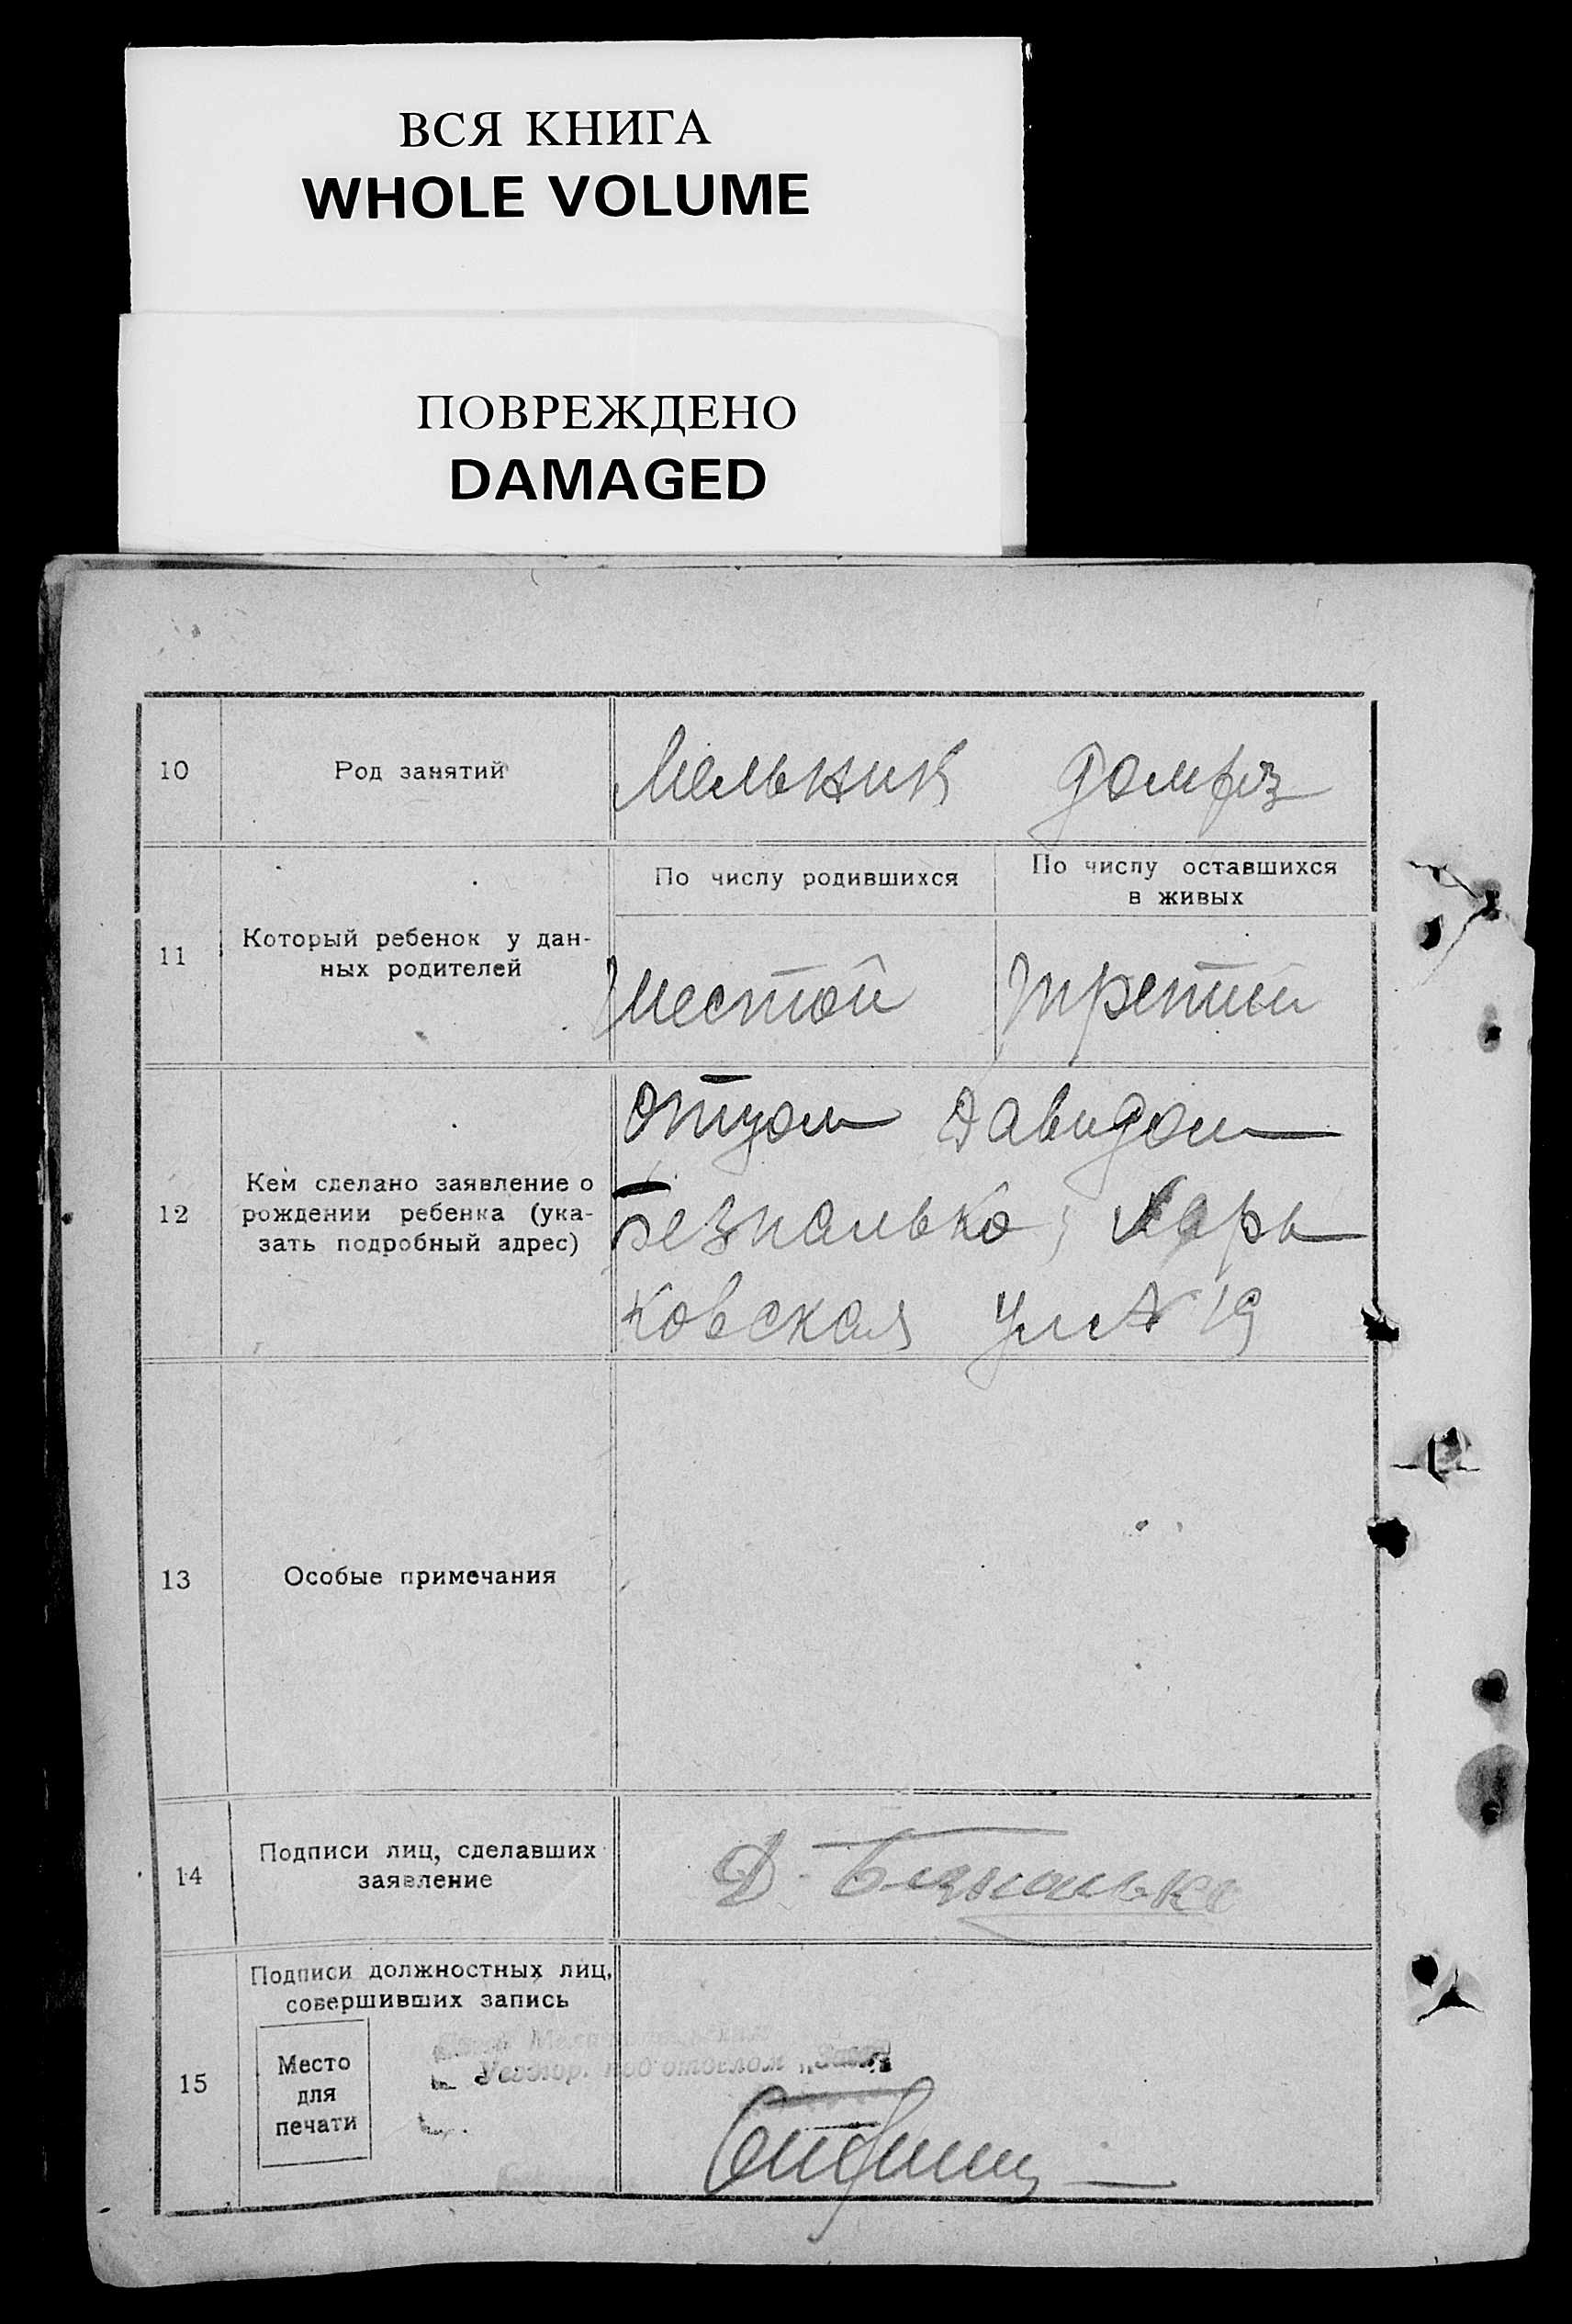 ВСЯ КНИГА
WHOLE VOLUME
ПОВРЕЖДЕНО
DAMAGED
10
Род занятий
Мельник домхоз
11
Который ребенок у дан-
ных родителей
По числу родившихся
По числу оставшихся
в живых
шестой
третий
12
Кем сделано заявление о
рождении ребенка (ука-
зать подробный адрес)
отцом Давидом
Безпалько, Харь
ковская ул № 19
13
Особые примечания
14
Подписи лиц, сделавших
заявление
Д. Безпалько
15
Подписи должностных лиц,
совершивших запись
Место
для
печати
подотделом